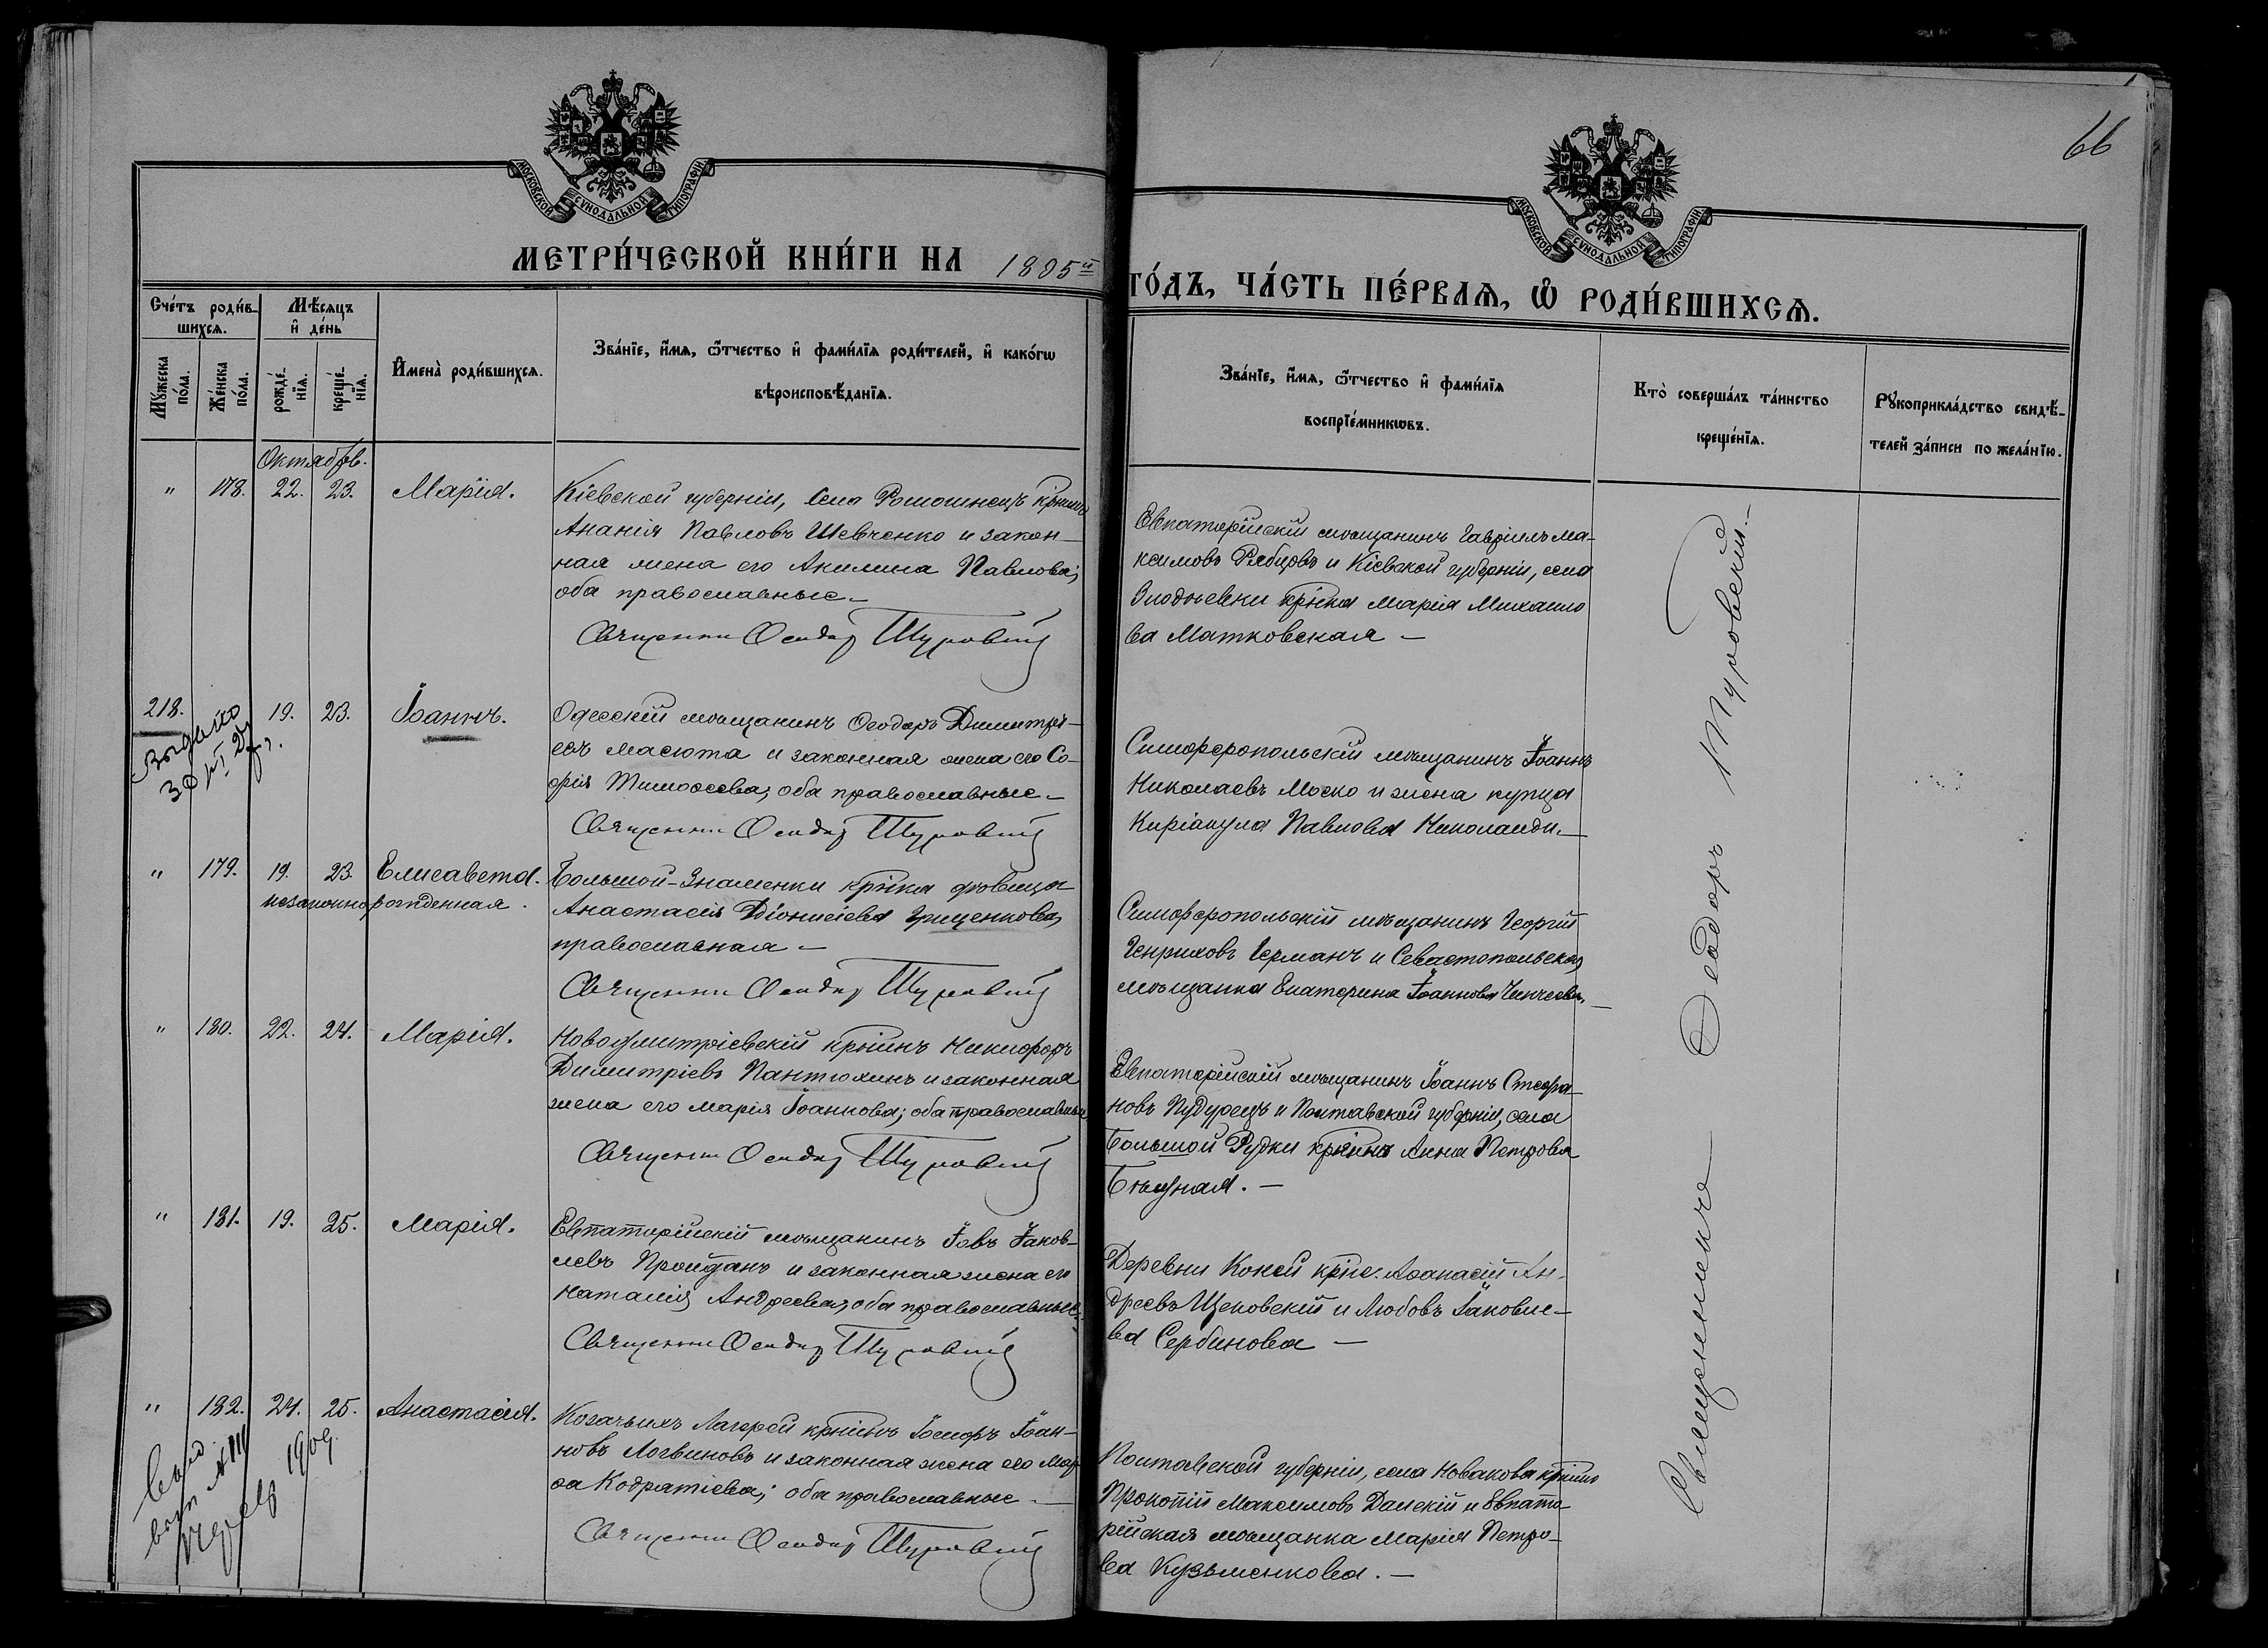 66
МОСКОВСКОЙ СѴНОДАЛЬНОЙ ТИПОГРАФІИ
МОСКОВСКОЙ СѴНОДАЛЬНОЙ ТИПОГРАФІИ
МЕТРИ́ЧЕСКОЙ КНИ́ГИ НА 1895й ГО́ДЪ, ЧА́СТЬ ПЕ́РВАѦ, Ѽ РОДИ́ВШИХСѦ.
Сче́тъ роди́в-
шихсѧ.
Мѣ́сѧцъ
и҆ де́нь
Мꙋ́жеска по́ла.
Же́нска по́ла.
рожде́-
нїѧ.
креще́-
нїѧ.
И҆мена̀ роди́вшихсѧ.
Зва́нїе, и҆́мѧ, ѻ҆́тчество и҆ фами́лїѧ роди́телей, и҆ како́гѡ
вѣроисповѣ́данїѧ.
Зва́нїе, и҆́мѧ, ѻ҆́тчество и҆ фами́лїѧ
воспрїе́мникѡвъ.
Кто̀ соверша́лъ та́инство
креще́нїѧ.
Рꙋкоприкла́дство свидѣ́-
телей за́писи по жела́нїю.
Октябрь.
" 178. 22. 23. Марія.
Кіевской губерніи, села Ромошнецъ кр-нинъ
Ананія Павловъ Шевченко и закон-
ная жена его Акилина Павлова;
оба православные –
Священник Феодор Туровский
Евпаторійскій мѣщанинъ Гавріилъ Ма-
ксимовъ Рябцовъ и Кіевской губерніи, села
кр-нка Марія Михаило
ва Матковская –
218. 19. 23. Іоаннъ.
Выдано
30/VI
Одесскій мѣщанинъ Ѳеодоръ Димитрі-
евъ Масюта и законная жена его Со-
фія Тимоѳеева; оба православные –
Священник Феодор Туровский
Симферопольскій мѣщанинъ Іоаннъ
Николаевъ Моско и жена купца
Киріакула Павлова Николаиди. –
" 179. 19. 23. Елисавета.
незаконнорожденная.
Большой-Знаменки кр-нка дѣвица
Анастасія Діонисіева Грищенкова,
православная –
Священник Феодор Туровский
Симферопольскій мѣщанинъ Георгій
Генриховъ Германъ и Севастопольская
мѣщанка Екатерина Іоаннова
" 180. 22. 24. Марія.
Новодмитріевскій кр-нинъ Никифоръ
Димитріевъ Пантюхинъ и законная
жена его Марія Іоаннова; оба православные
Священник Феодор Туровский
Евпаторійскій мѣщанинъ Іоаннъ Стефа-
новъ и Полтавской губерніи, села
Большой Рудки Анна Петрова
" 181. 19. 25. Марія.
Евпаторійскій мѣщанинъ Іовъ Іаков-
левъ Пройданъ и законная жена его
Наталія Андреева; оба православные.
Священник Феодор Туровский
Деревни Коней крес. Аѳанасій Ан-
дреевъ Щеповскій и Любовь Іаковле-
ва Сербинова –
" 182. 24. 25. Анастасія.
1909.
Козачьихъ Лагерей кр-нинъ Іосифъ Іоан-
новъ Логвиновъ и законная жена его Мар-
ѳа Кодратіева; оба православные –
Священник Феодор Туровский
Полтавской губерніи, села Новакова кр-нинъ
Прокопій Максимовъ Данскій и Евпато-
рійская мѣщанка Марія Петро-
ва Кузьменкова. –
Священникъ Феодоръ Туровскій. –